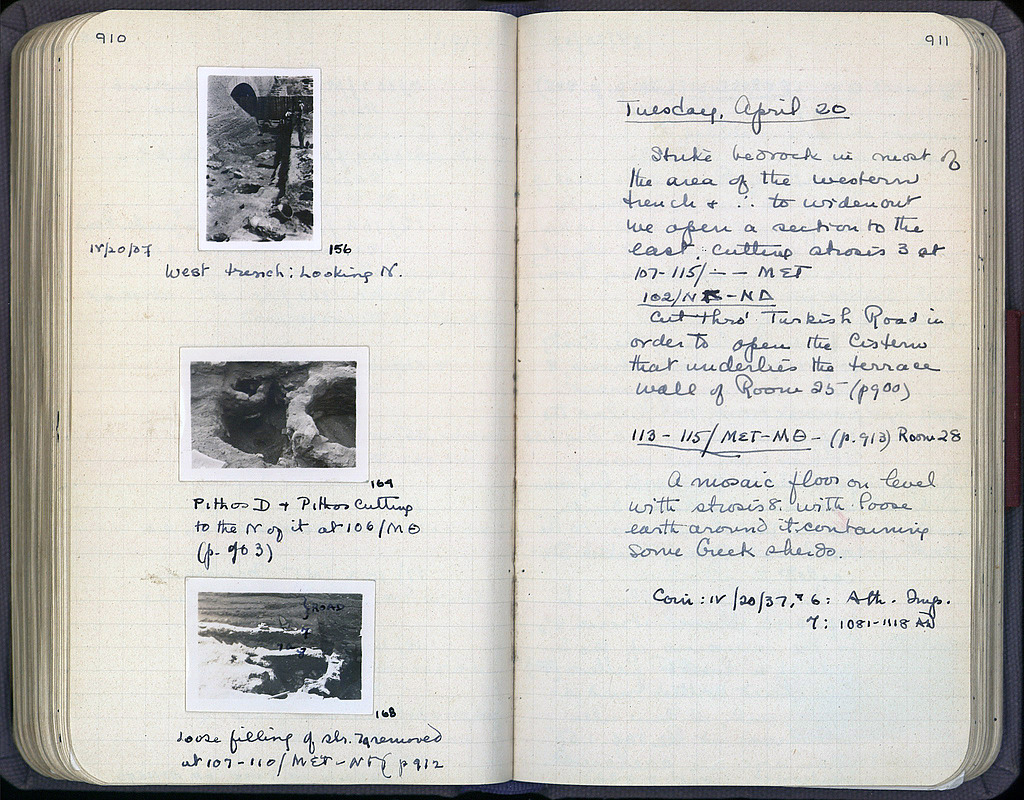 910
IV/20/37
156
West trench: Looking N.
164
Pithos D + Pithos Cutting
to the N of it at 106/MΘ
(p. 903)
ROAD
168
Loose filling of str. removed
at 107-110/ΜΕΤ-Ν p 912
911
Tuesday, April 20
Strike bedrock in most of
the area of the western
trench & ∴ to widen out
we open a section to the
east, cutting strosis 3 at
107-115/-- ΜΕΤ
102/N -ΝΔ
Cut thro' Turkish Road in
order to open the Cistern
that underlies the terrace
wall of Room 25 (p900)
113-115/ΜΕΤ-ΜΘ- (p. 913) Room 28
A mosaic floor on level
with strosis 8, with loose
earth around it containing
some Greek sherds.
Coin: IV/20/37, #6: Ath. Imp.
7: 1081-1118 AD